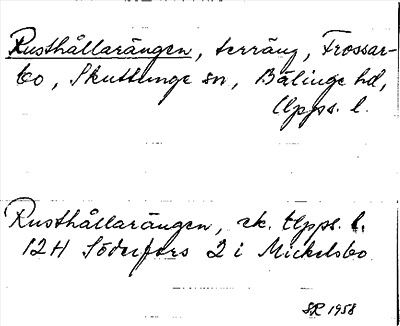 Rusthållarängen, terräng, Frossar-
bo, Skuttunge sn, Bälinge hd,
Upps. l.
Rusthållarängen, ek. Upps. l.
12H Söderfors 2 i Mickelsbo
SR 1958